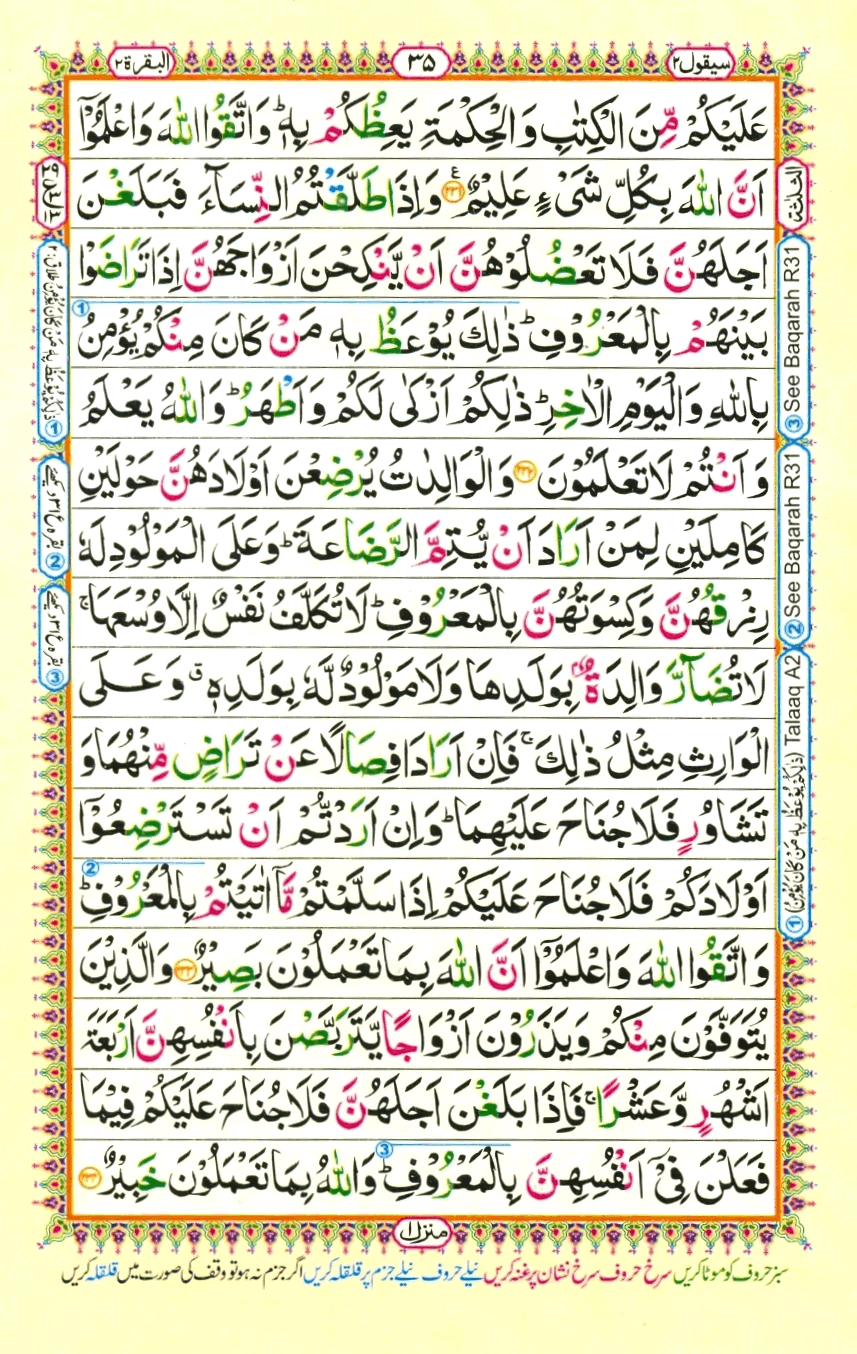 سيقول ٢
٣٥
البقرة ٢
عَلَيْكُمْ مِّنَ الْكِتٰبِ وَالْحِكْمَةِ يَعِظُكُمْ بِهٖ ؕ وَاتَّقُوا اللّٰهَ وَاعْلَمُوْۤا
اَنَّ اللّٰهَ بِكُلِّ شَیْءٍ عَلِيْمٌ ﴿۲۳۱﴾ وَاِذَا طَلَّقْتُمُ النِّسَآءَ فَبَلَغْنَ
اَجَلَهُنَّ فَلَا تَعْضُلُوْهُنَّ اَنْ يَّنْكِحْنَ اَزْوَاجَهُنَّ اِذَا تَرَاضَوْا
بَيْنَهُمْ بِالْمَعْرُوْفِ ؕ ذٰلِكَ يُوْعَظُ بِهٖ مَنْ كَانَ مِنْكُمْ يُؤْمِنُ
بِاللّٰهِ وَالْيَوْمِ الْاٰخِرِ ؕ ذٰلِكُمْ اَزْكٰى لَكُمْ وَاَطْهَرُ ؕ وَاللّٰهُ يَعْلَمُ
وَاَنْتُمْ لَا تَعْلَمُوْنَ ﴿۲۳۲﴾ وَالْوَالِدٰتُ يُرْضِعْنَ اَوْلَادَهُنَّ حَوْلَيْنِ
كَامِلَيْنِ لِمَنْ اَرَادَ اَنْ يُّتِمَّ الرَّضَاعَةَ ؕ وَعَلَى الْمَوْلُوْدِ لَهٗ
رِزْقُهُنَّ وَكِسْوَتُهُنَّ بِالْمَعْرُوْفِ ؕ لَا تُكَلَّفُ نَفْسٌ اِلَّا وُسْعَهَا ۚ
لَا تُضَآرَّ وَالِدَةٌۢ بِوَلَدِهَا وَلَا مَوْلُوْدٌ لَّهٗ بِوَلَدِهٖ ۗ وَعَلَى
الْوَارِثِ مِثْلُ ذٰلِكَ ۚ فَاِنْ اَرَادَا فِصَالًا عَنْ تَرَاضٍ مِّنْهُمَا وَ
تَشَاوُرٍ فَلَا جُنَاحَ عَلَيْهِمَا ؕ وَاِنْ اَرَدْتُّمْ اَنْ تَسْتَرْضِعُوْۤا
اَوْلَادَكُمْ فَلَا جُنَاحَ عَلَيْكُمْ اِذَا سَلَّمْتُمْ مَّاۤ اٰتَيْتُمْ بِالْمَعْرُوْفِ ؕ
وَاتَّقُوا اللّٰهَ وَاعْلَمُوْۤا اَنَّ اللّٰهَ بِمَا تَعْمَلُوْنَ بَصِيْرٌ ﴿۲۳۳﴾ وَالَّذِيْنَ
يُتَوَفَّوْنَ مِنْكُمْ وَيَذَرُوْنَ اَزْوَاجًا يَّتَرَبَّصْنَ بِاَنْفُسِهِنَّ اَرْبَعَةَ
اَشْهُرٍ وَّعَشْرًا ۚ فَاِذَا بَلَغْنَ اَجَلَهُنَّ فَلَا جُنَاحَ عَلَيْكُمْ فِيْمَا
فَعَلْنَ فِیْۤ اَنْفُسِهِنَّ بِالْمَعْرُوْفِ ؕ وَاللّٰهُ بِمَا تَعْمَلُوْنَ خَبِيْرٌ ﴿۲۳۴﴾
منزل ۱
سبز حروف کو موٹا کریں سرخ حروف سرخ نشان پر غنہ کریں نیلے حروف نیلے جزم پر قلقلہ کریں اگر جزم نہ ہو تو وقف کی صورت میں قلقلہ کریں
الثلثة
③ See Baqarah R31
② See Baqarah R31
① (ذٰلِكُمْ يُوْعَظُ بِهٖ مَنْ كَانَ يُؤْمِنُ) Talaaq A2
① ذٰلِكُمْ يُوْعَظُ بِهٖ مَنْ كَانَ يُؤْمِنُ طلاق: ۲
② بقرہ ع ۳۱ دیکھئے
③ بقرہ ع ۳۱ دیکھئے